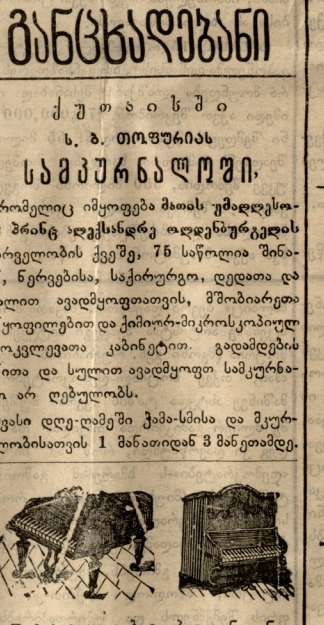 განცხადებანი
ქუთაისში
ს. ბ. თოფურიას
სამკურნალოში,
რომელიც იმყოფება მათის უმაღლესო-
პრინც ალექსანდრე ოლდენბურგელის
რველობის ქვეშე, 75 საწოლია შინა-
ნერვებისა, საქირურგო, დედათა და
ალით ავადმყოფთათვის, მშობიარეთა
ყოფილებით და ქიმიურ-მიკროსკოპიულ
ოკვლევათა კაბინეტით. გადამდების
ითა და სულით ავადმყოფთ სამკურნა-
ო არ ღებულობს.
ვასი დღე-ღამეში ჭამა-სმისა და მკურ-
ლობისათვის 1 მანათიდან 3 მანეთამდე.